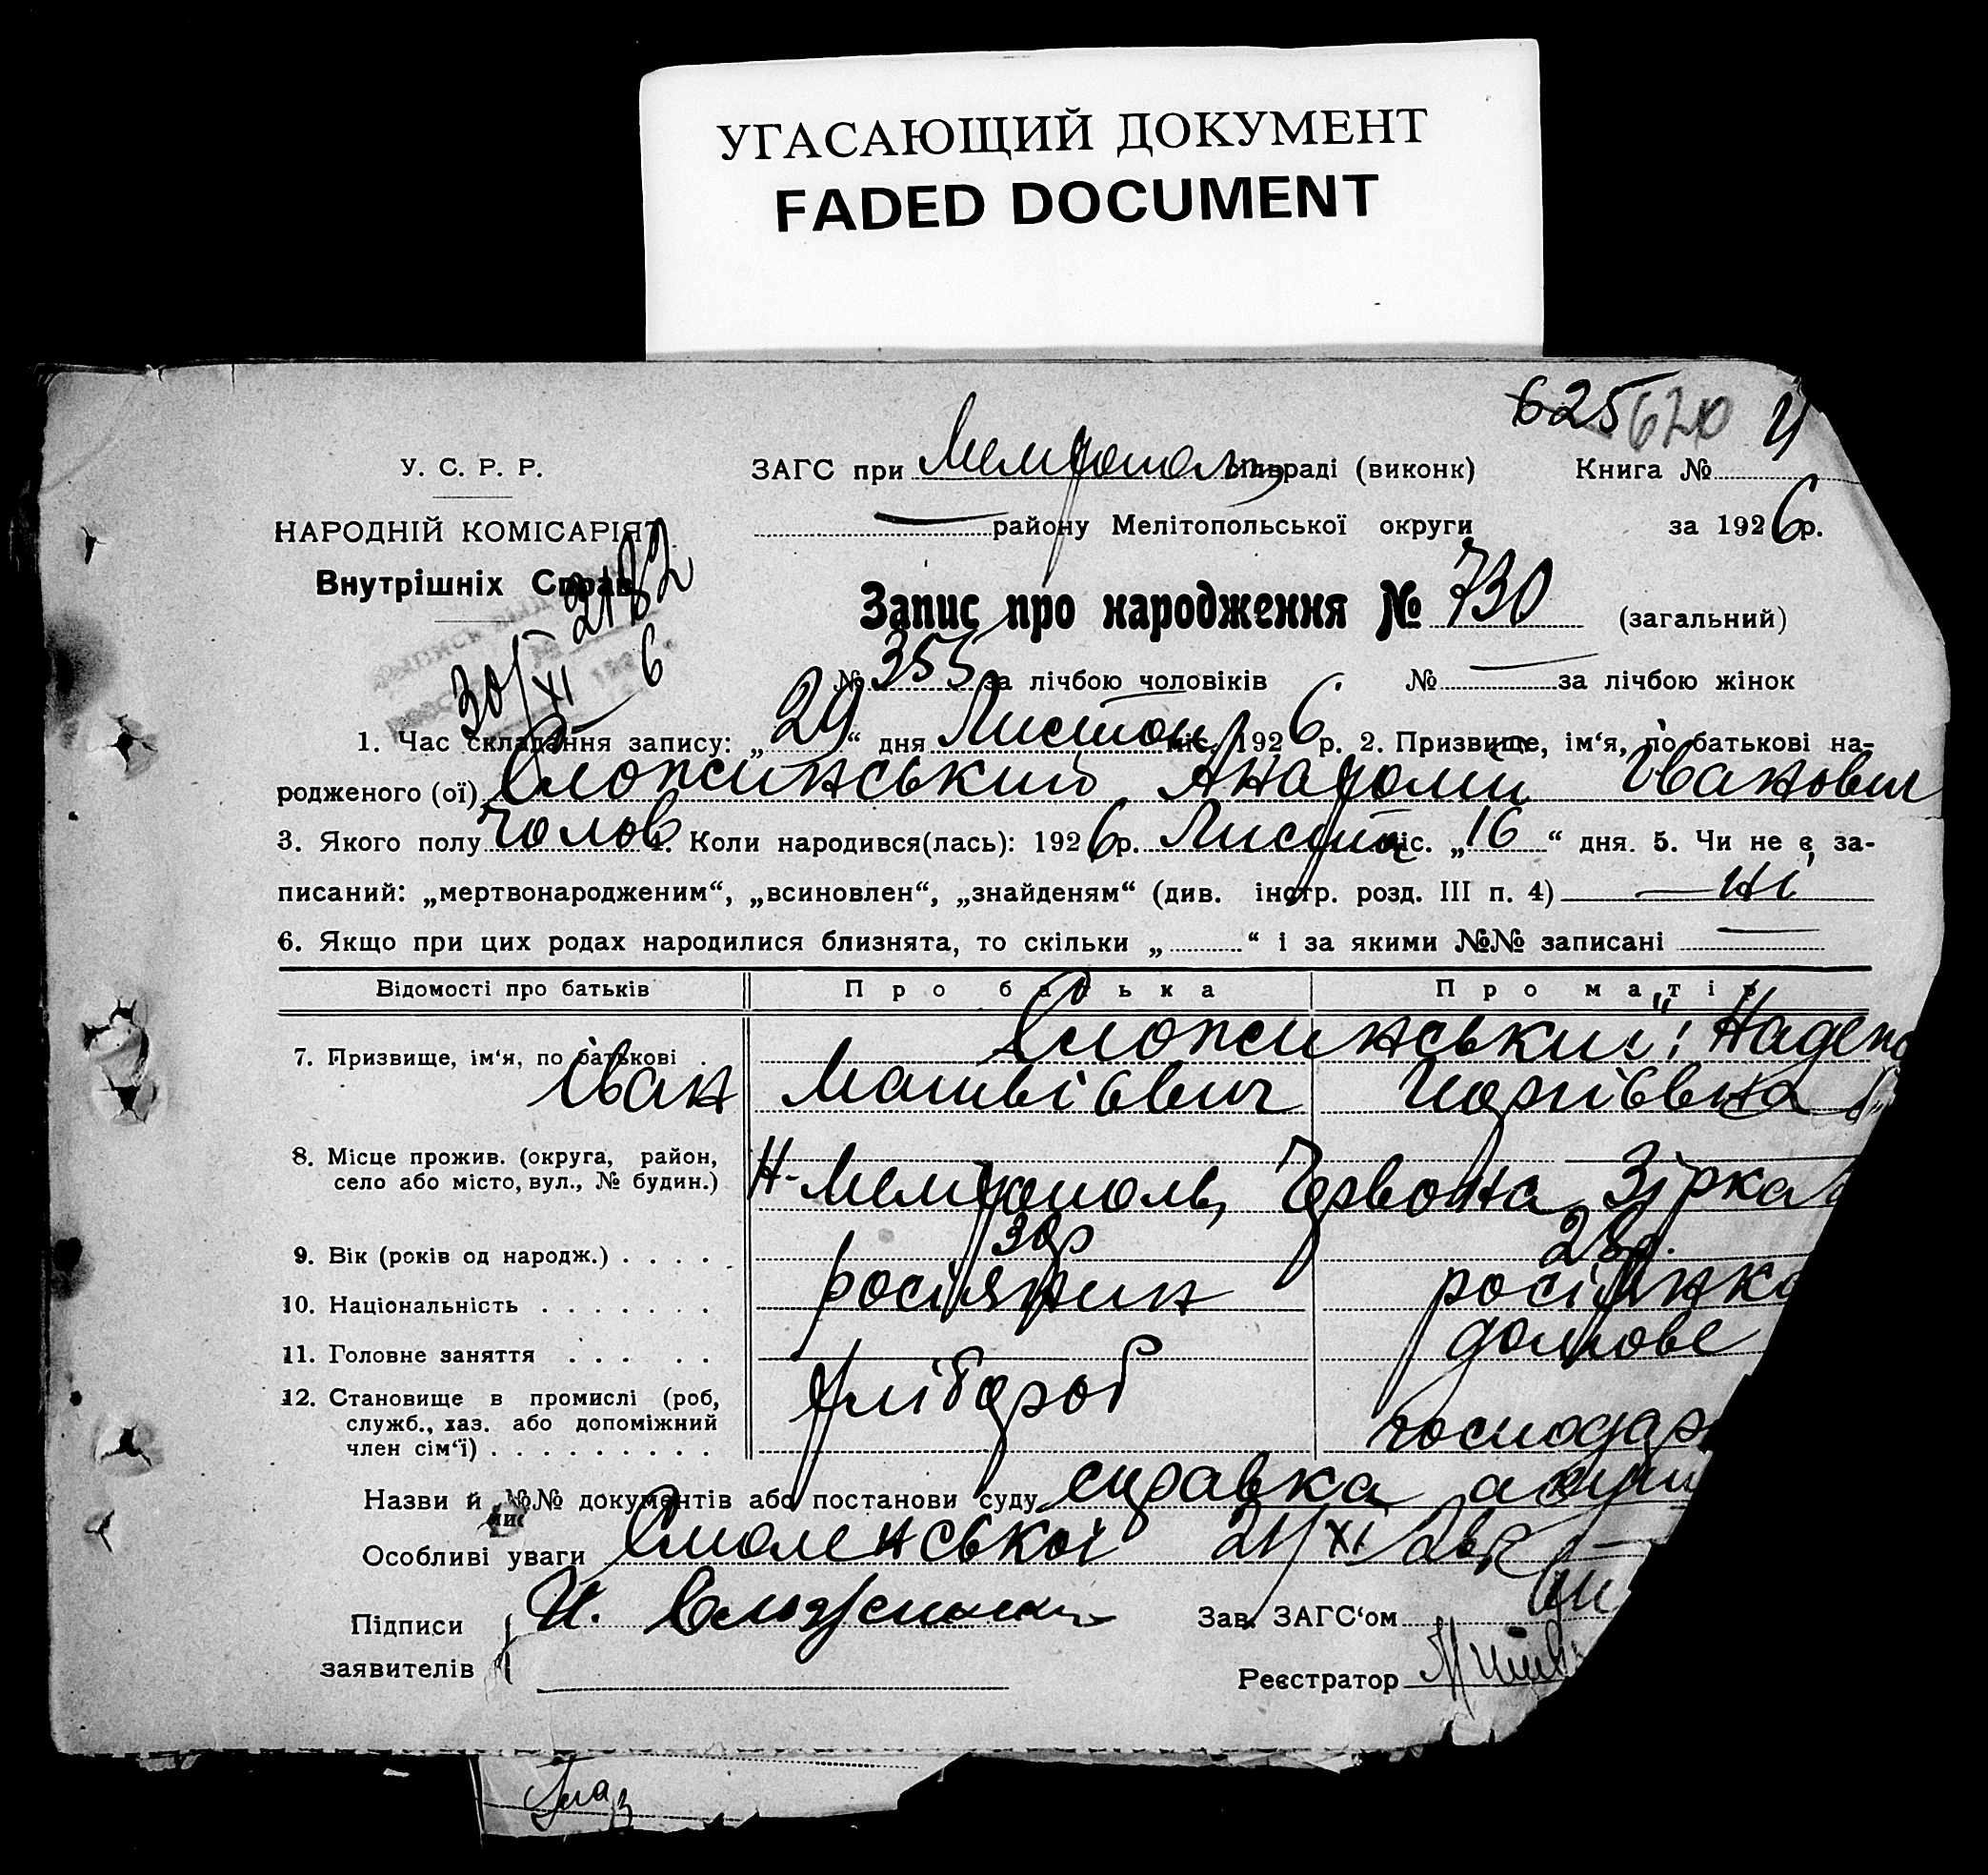 УГАСАЮЩИЙ ДОКУМЕНТ
FADED DOCUMENT
625 620 4
У. С. Р. Р. ЗАГС при сільраді (виконк) Книга №
НАРОДНІЙ КОМІСАРІЯТ району Мелітопольської округи за 1926 р.
Внутрішніх Справ
2182
30/XI 6
Запис про народження № 730 (загальний)
№ 355 за лічбою чоловіків № — за лічбою жінок
1. Час складання запису: „29“ дня Листоп міс. 1926 р. 2. Призвище, ім‘я, по батькові на-
родженого (ої) Анатолій Іванович
3. Якого полу чолов 4. Коли народився(лась): 1926 р. Листопа міс. „16“ дня. 5. Чи не є за-
писаний: „мертвонародженим“, „всиновлен“, „знайденям“ (див. інстр. розд. III п. 4) — ні
6. Якщо при цих родах народилися близнята, то скільки „ “ і за якими №№ записані —
Відомості про батьків Про батька Про матір
7. Призвище, ім‘я, по батькові
Іван Матвієвич
8. Місце прожив. (округа, район,
село або місто, вул., № будин.) Н-Мелітополь, Червона Зірка
9. Вік (років од народж.) . . . . 30р 28р.
10. Національність . . . . . . . росіянин росіянка
11. Головне заняття . . . . . домове
12. Становище в промислі (роб, хлібороб
служб., хаз. або допоміжний
член сім‘ї) . . . . . . . . . господар
Назви й №№ документів або постанови суду справка акуш
Особливі уваги Смоленської 21/XI 26р
Підписи
заявителів И. Зав. ЗАГС‘ом
Реєстратор